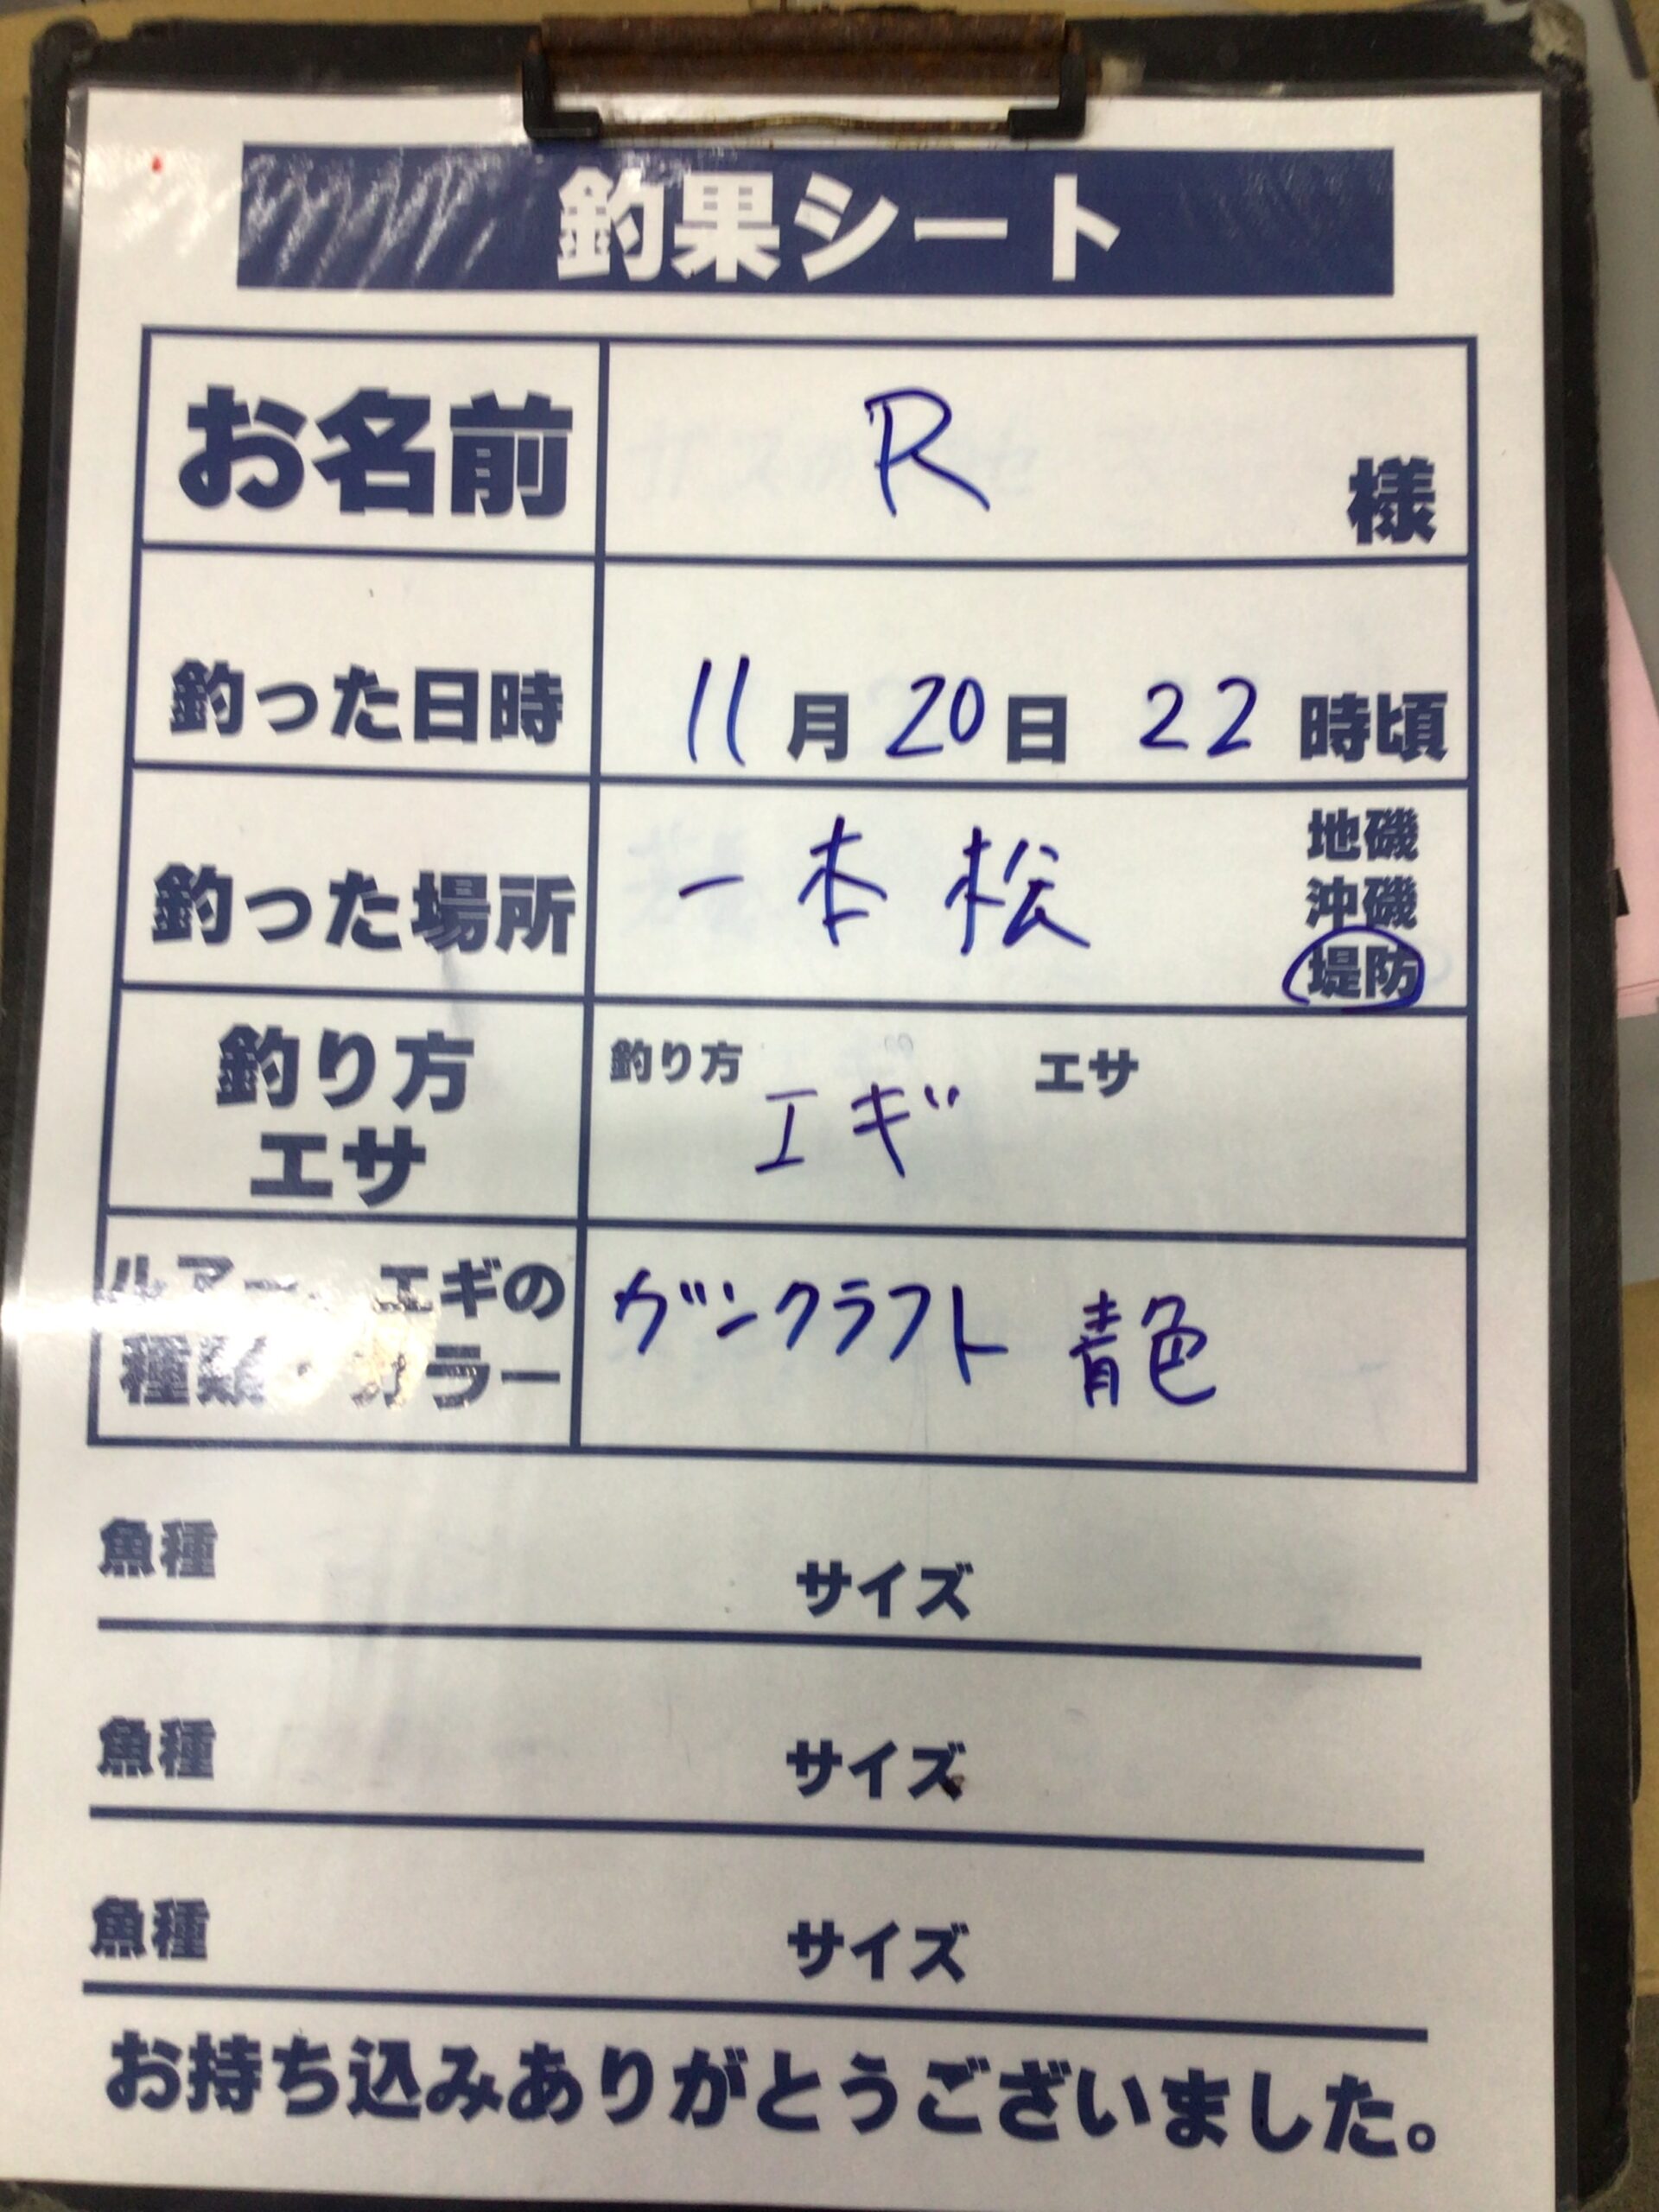 釣果シート
お名前 R 様
釣った日時 11月20日 22時頃
釣った場所 一本松 地磯
沖磯
堤防
釣り方
エサ
釣り方 エギ エサ
ルアー、エギの
種類・カラー
ガンクラフト 青色
魚種 サイズ
魚種 サイズ
魚種 サイズ
お持ち込みありがとうございました。